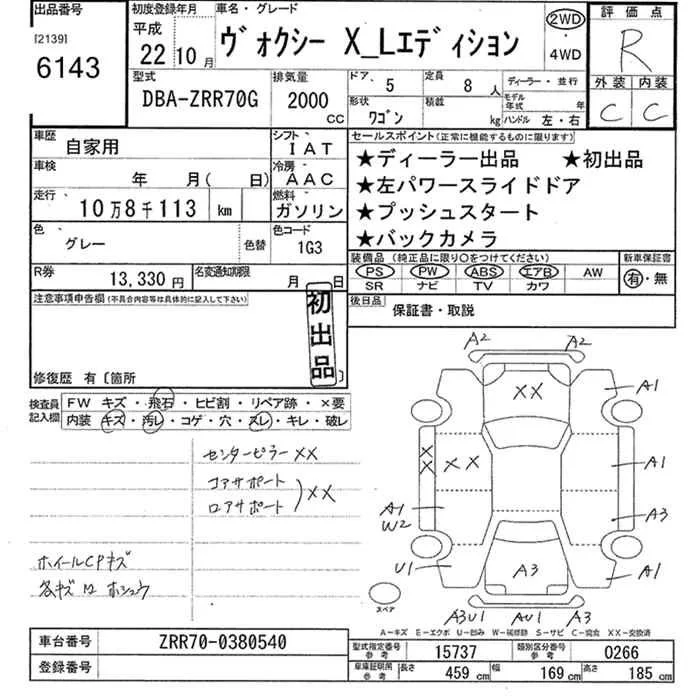 出品番号
[2139]
6143
初度登録年月
平成
22年10月
車名・グレード
ヴォクシー X_Lエディション
2WD
・
4WD
評価点
R
外装 内装
C C
型式
DBA-ZRR70G
排気量
2000
CC
ドア、 5
定員 8 人
形状 ワゴン
積載 kg
ディーラー・並行
モデル年式 年
ハンドル 左・右
車歴 自家用
シフト IAT
車検 年 月( 日)
冷房 AAC
走行 10万8千113 km
燃料 ガソリン
色 グレー 色替
色コード 1G3
R券 13,330円
名変通知期限 月 日
セールスポイント(正常に機能するものに限ります)
★ディーラー出品 ★初出品
★左パワースライドドア
★プッシュスタート
★バックカメラ
装備品 (純正品に限り○をつけてください)
新車保証書
PS PW ABS エアB AW
SR ナビ TV カワ
有・無
後日品 保証書・取説
注意事項申告欄(不具合内容等は具体的に記入して下さい)
初出品
修復歴 有〔箇所
検査員記入欄
FW キズ・飛石・ヒビ割・リペア跡・×要
内装 キズ・汚レ・コゲ・穴・スレ・キレ・破レ
センターピラー XX
コアサポート
ロアサポート
)XX
ホイールCPキズ
各キズ
ホシュウ
A2 A2
XX
A1
XX
XX
A1
A1
W2
A3
U1
A1
A3
スペア
A3U1 AU1 A3
A-キズ E-エクボ U-凹み W-補修跡 S-サビ C-腐食 XX-交換済
車台番号 ZRR70-0380540
登録番号
型式指定番号 参考 15737
類別区分番号 参考 0266
車庫証明用 参考 長さ 459 cm 幅 169 cm 高さ 185 cm